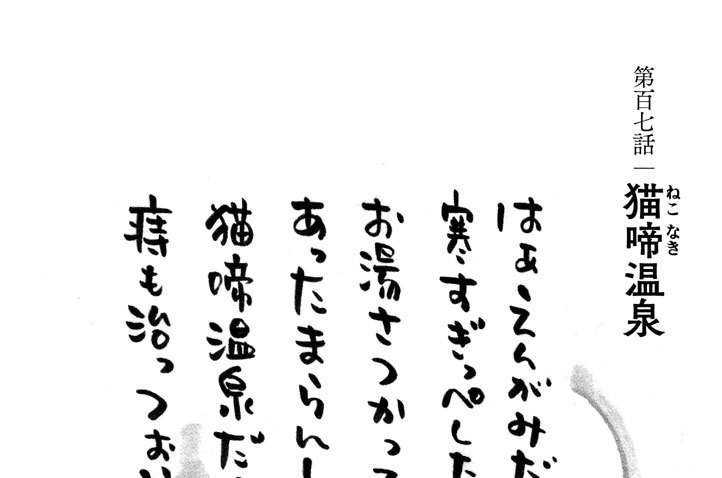 第百七話―猫啼温泉
ねこなき
はぁ、えんがみだ
寒すぎっぺした
お湯さつかって
あったまらんし
猫啼温泉だ
痔も治っつおい